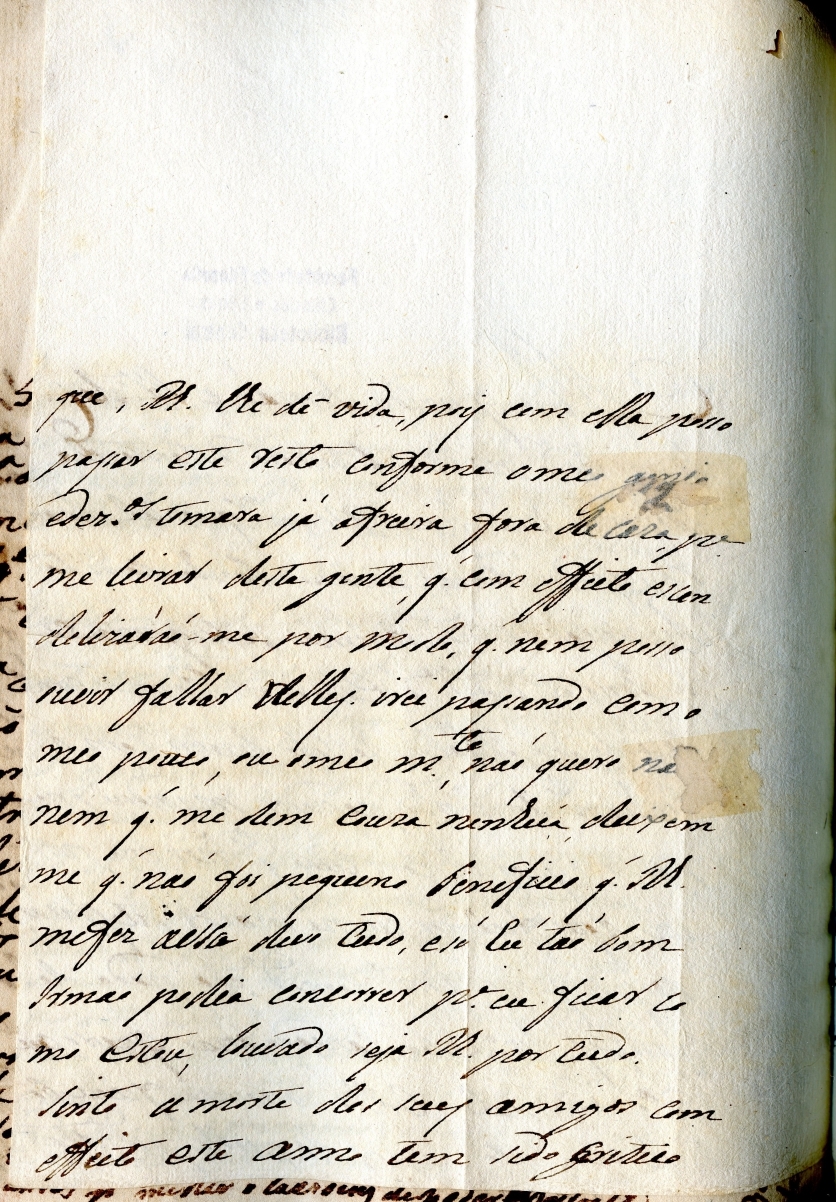 que, D.s lhe dê vida, pois com ella posso
pasar este resto conforme o meo genio
e dez.os tomara já a freira fora de caza, pa
me livrar desta gente, q. com effeito escan
delizarão-me por modo, q. nem posso
ouvir fallar delles. irei pasando com o
meo pouco, ou o meo m.to não quero
nem q. me dem couza nenhũa, deixem
me q. não foi pequeno beneficio q. D.s
me fez a elle devo tudo, e só hũ tão bom
Irmão podia concorrer p.a eu ficar co
mo estou, louvado seja D.s por tudo.
Sinto a morte dos seus amigos com
effeito este anno tem sido